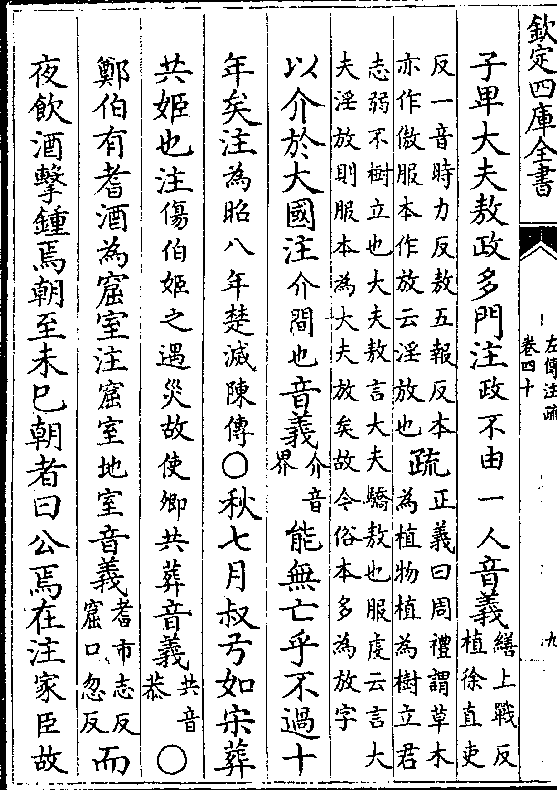 欽定四庫全書
左傳注疏
卷四十
九
子卑大夫敖政多門注政不由一人音義繕上戰反植徐直吏
反一音時力反敖五報反本亦作傲服本作放云淫放也疏正義曰周禮謂草木為植物植為樹立君
志弱不樹立也大夫敖言大夫驕敖也服虔云言大夫淫放則服本為大夫放矣故今俗本多為放字
以介於大國注介間也音義介音界能無亡乎不過十
年矣注為昭八年楚滅陳傳○秋七月叔弓如宋葬
共姬也注傷伯姬之遇災故使卿共葬音義共音恭○
鄭伯有耆酒為窟室注窟室地室音義耆市志反窟口忽反而
夜飲酒擊鍾焉朝至未已朝者曰公焉在注家臣故